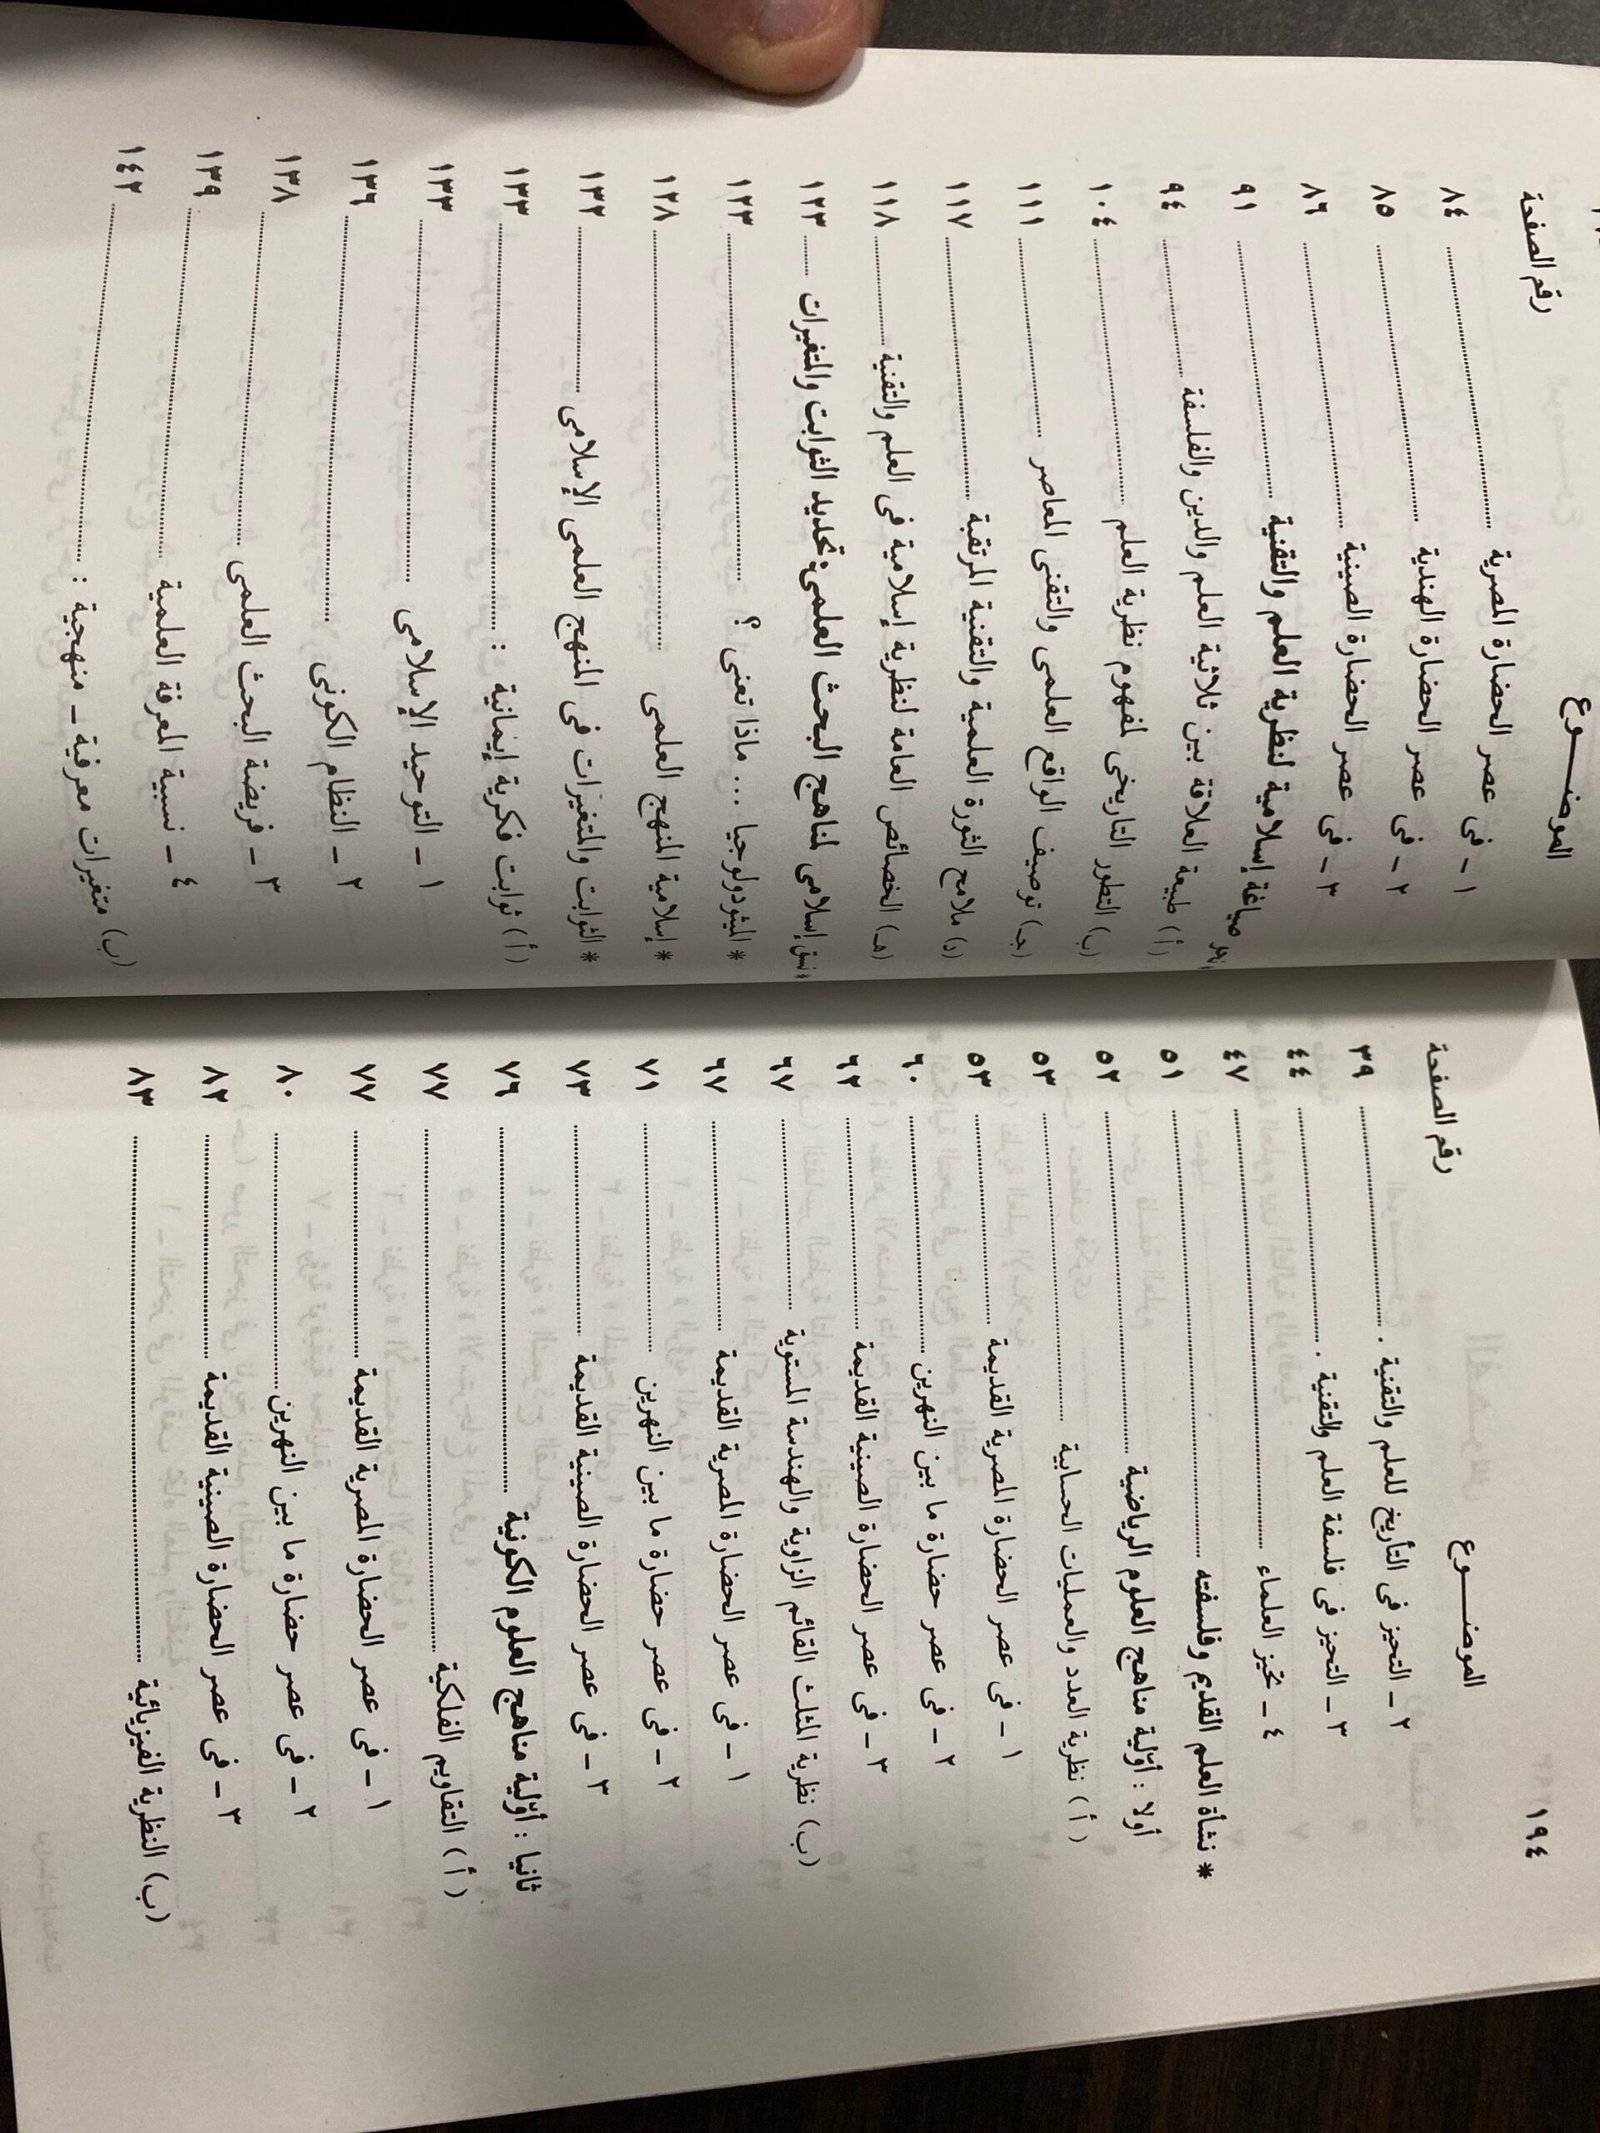 ١٩٤
الموضـــــوع رقم الصفحة
٢ ـ التحيز فى التأريخ للعلم والتقنية . ٣٩
٣ ـ التحيز فى فلسفة العلم والتقنية . ٤٤
٤ ـ تحيز العلماء ٤٧
* نشأة العلم القديم وفلسفته ٥١
أولا : أوّلية مناهج العلوم الرياضية ٥٢
( أ ) نظرية العدد والعمليات الحسابية ٥٣
١ ـ فى عصر الحضارة المصرية القديمة ٥٣
٢ ـ فى عصر حضارة ما بين النهرين ٦٠
٣ ـ فى عصر الحضارة الصينية القديمة ٦٢
(ب) نظرية المثلث القائم الزاوية والهندسة المستوية ٦٧
١ ـ فى عصر الحضارة المصرية القديمة ٦٧
٢ ـ فى عصر حضارة ما بين النهرين ٧١
٣ ـ فى عصر الحضارة الصينية القديمة ٧٣
ثانيا : أوّلية مناهج العلوم الكونية ٧٦
( أ ) التقاويم الفلكية ٧٧
١ ـ فى عصر الحضارة المصرية القديمة ٧٧
٢ ـ فى عصر حضارة ما بين النهرين ٨٠
٣ ـ فى عصر الحضارة الصينية القديمة ٨٢
(ب) النظرية الفيزيائية ٨٣
الموضـــــوع رقم الصفحة
١ ـ فى عصر الحضارة المصرية ٨٤
٢ ـ فى عصر الحضارة الهندية ٨٥
٣ ـ فى عصر الحضارة الصينية ٨٦
نحو صياغة إسلامية لنظرية العلم والتقنية ٩١
( أ ) طبيعة العلاقة بين ثلاثية العلم والدين والفلسفة ٩٤
(ب) التطور التاريخى لمفهوم نظرية العلم ١٠٤
(جـ) توصيف الواقع العلمى والتقنى المعاصر ١١١
(د) ملامح الثورة العلمية والتقنية المرتقبة ١١٧
(هـ) الخصائص العامة لنظرية إسلامية فى العلم والتقنية ١١٨
* نسق إسلامى لمناهج البحث العلمى: تحديد الثوابت والمتغيرات ١٢٣
* الميثودولوجيا ... ماذا تعنى ؟ ١٢٣
* إسلامية المنهج العلمى ١٢٨
* الثوابت والمتغيرات فى المنهج العلمى الإسلامى ١٣٢
( أ ) ثوابت فكرية إيمانية : ١٣٣
١ ـ التوحيد الإسلامى ١٣٣
٢ ـ النظام الكونى ١٣٦
٣ ـ فريضة البحث العلمى ١٣٨
٤ ـ نسبية المعرفة العلمية ١٣٩
(ب) متغيرات معرفية ـ منهجية : ١٤٢